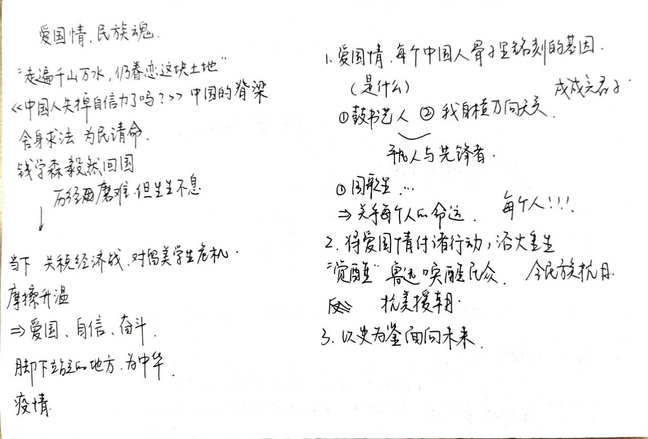 爱国情、民族魂.
"走遍千山万水,仍眷恋这块土地"
《中国人失掉自信力了吗?》 中国的脊梁
舍身求法 为民请命.
钱学森毅然回国
历经磨难 但生生不息
↓
当下 关税经济战、对留美学生危机.
摩擦升温
⇒爱国、自信、奋斗.
脚下站立的地方、为中华
疫情.
1. 爱国情,每个中国人骨子里铭刻的基因.
(是什么)
①鼓书艺人 ② 戊戌六君子
平凡人与先锋者.
① 国歌
⇒关乎每个人的命运. 每个人!!!
2. 将爱国情付诸行动,
"觉醒" 鲁迅唤醒民众. 全民族抗日
抗美援朝.
3. 以史为鉴面向未来.